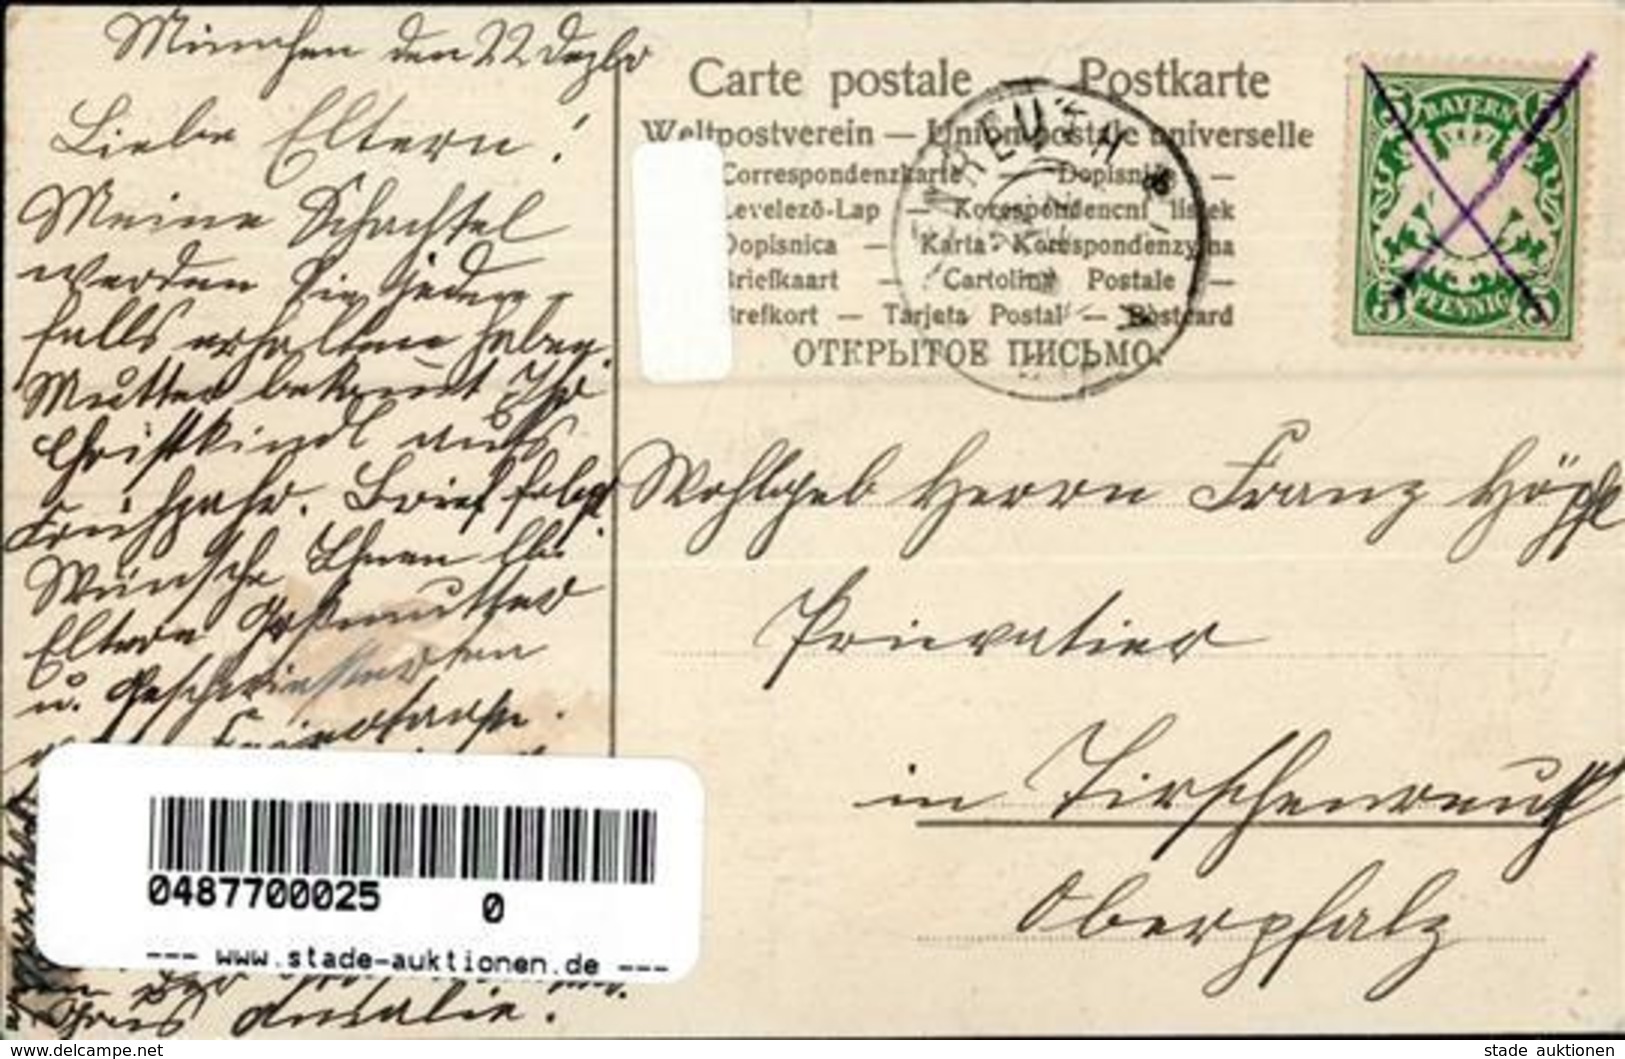 München den 22 Dezbr
Liebe Eltern!
Meine Schachtel
werden Sie jeden-
falls erhalten haben.
Mutter bekomt Ihr
Christkindl aufs
Frühjahr. Brief folgt.
Wünsche Ihnen lb.
Eltern Großmutter
u. Geschwisterten
Feiertage.
Amalie.
Carte postale Postkarte
Weltpostverein — Union postale universelle
Correspondenzkarte — Dopisnice —
Levelező-Lap — Korespondencní lístek
Dopisnica — Karta Korespondenzyjna
Briefkaart — Cartolina Postale —
Brefkort — Tarjeta Postal — Postcard
ОТКРЫТОЕ ПИСЬМО.
BAYERN
5 5
5 PFENNIG 5
Wohlgeb Herrn Franz Höpfl
Privatier
in Tirschenreuth
Oberpfalz
0487700025 0
--- www.stade-auktionen.de ---
www.delcampe.net
stade auktionen